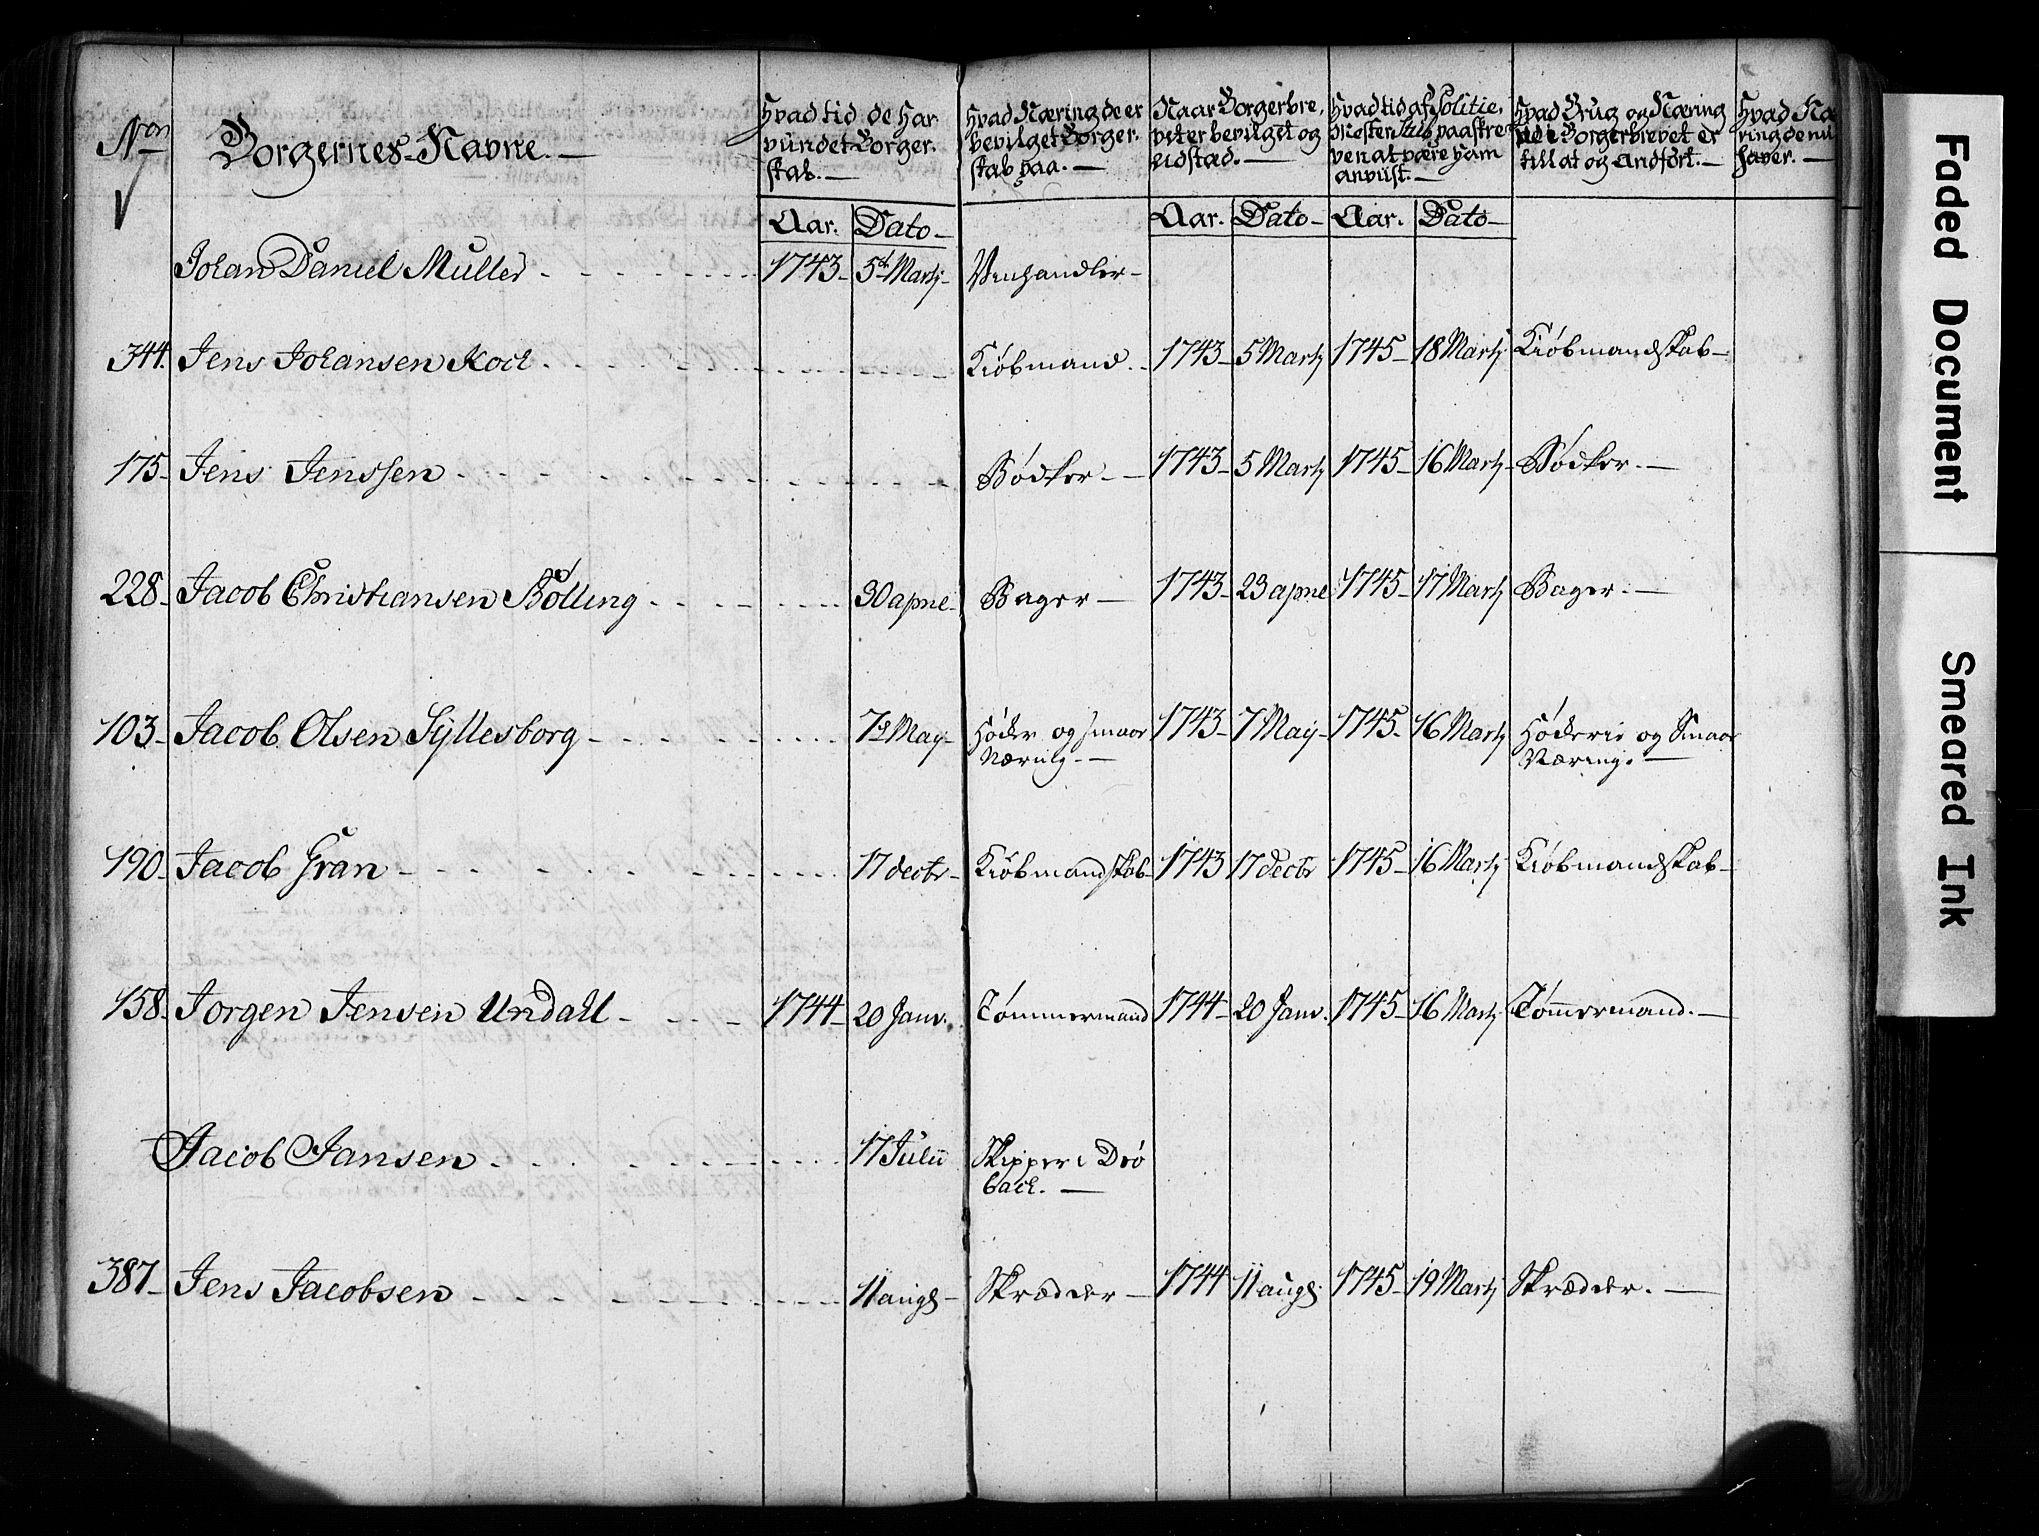 Nᵒⁿ
Borgernes Navne. —
Hvad tid de har
vundet Borger-
skab. —
Aar.
Dato —
Hvad Næring de er
bevilget Borger-
skab paa. —
Naar Borgerbre-
vet er bevilget og
udstæd. —
Aar.
Dato —
Hvad tid af Politie-
ven at være ham
anviist. —
Aar.
Dato —
Hvad Brug og Næring
Borgerbrevet er
till at og Andfört. —
Hvad Næ
ring de nu
haver. —
Johan Daniel Muller - - - - - - - - 1743 - 5ᵗ Martj - Viinhandler -
344. Jens Johansen Koch - - - - - - Kiöbmand - 1743 - 5 Martj 1745 - 18 Martj Kiöbmandskab -
175. Jens Jenssen - - - - - - Bödker - - 1743 - 5 Martj 1745 - 16 Martj - Bödker. —
228 - Jacob Christiansen Bölling - - - - - 30 aprıl - Bager - 1743 - 23 aprıl 1745 - 17 Martj Bager. —
103 - Jacob Olsen Syllesborg - - - - - - 7ᵈ May - Höcker og smaae 1743 - 7 May - 1745 - 16 Martj Höckerie og Smaae
Næring - — Næring. —
190 - Jacob Gran - - - - - - 17 decbr - Kiöbmandskab - 1743 17 decbr 1745 - 16 Martj Kiöbmandskab -
158 - Jorgen Jensen Undall - - - - 1744 - 20 Janv. Tömmermand 1744 - 20 Janv. 1745 - 16 Martj Tömmermand. —
Jacob Jansen - - - - - - 17 Julii Skipper i Drö
back. —
387 - Jens Jacobsen - - - - - - 11 augs - Skrædder - 1744 11 augs. 1745 - 19 Martj Skrædder. —
Faded Document
Smeared Ink